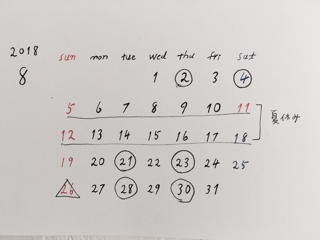 2018
8
sun mon tue wed thu fri sat
1 2 3 4
5 6 7 8 9 10 11
夏休み
12 13 14 15 16 17 18
19 20 21 22 23 24 25
26 27 28 29 30 31